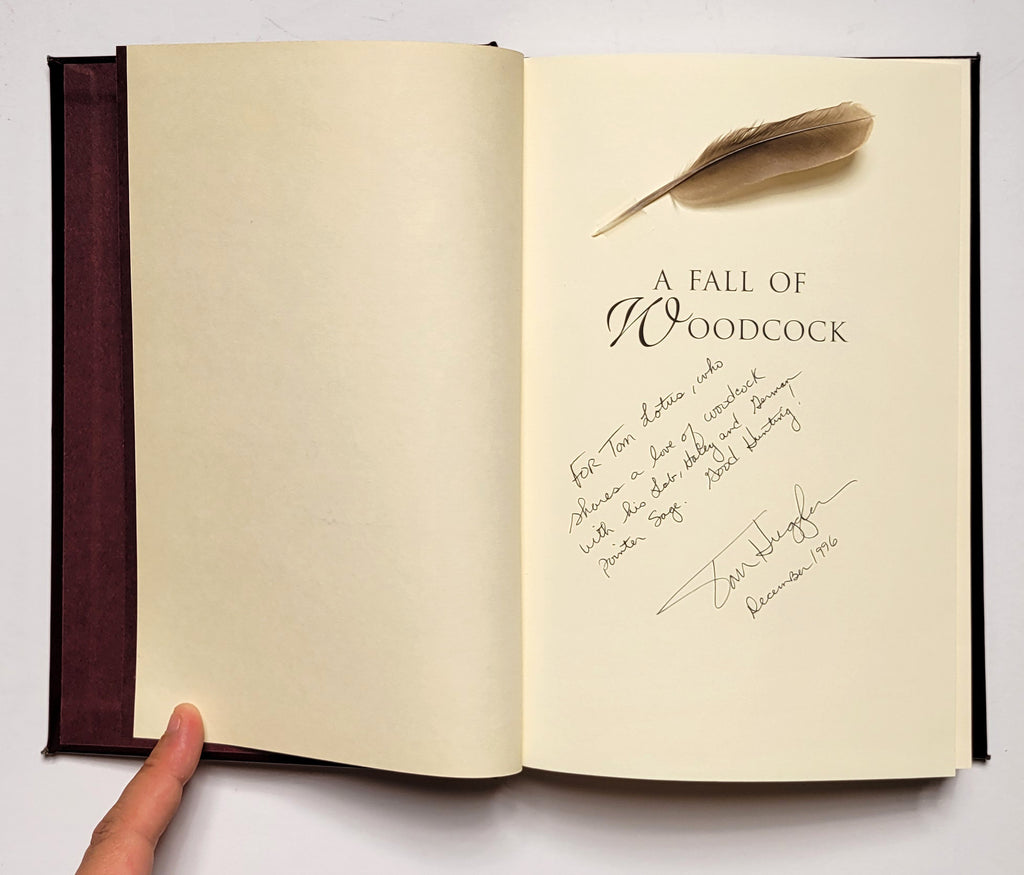 A FALL OF
WOODCOCK
For Tom Lotus, who
shares a love of woodcock
with his Lab, Haley and German
pointer Sage. Good Hunting!
Tom Huggler
December 1996